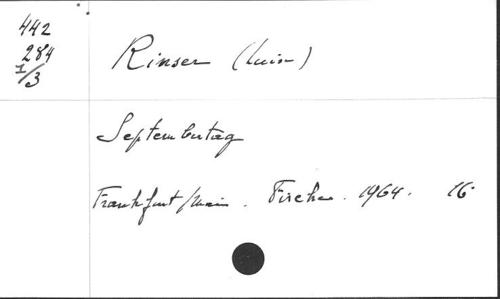 442
284
I/3
Rinser (Luise)
Septembertag
Frankfurt/Main. Fischer. 1964. 16°